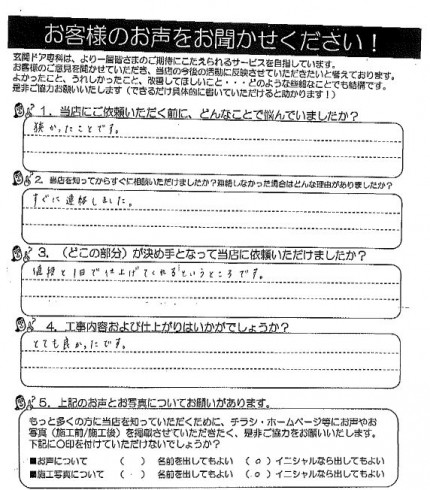 お客様のお声をお聞かせください！
玄関ドア専科は、より一層皆さまのご期待にこたえられるサービスを目指しています。
お客様のご意見を聞かせていただき、当店の今後の活動に反映させていただきたいと考えております。
よかったこと、うれしかったこと、改善してほしいこと・・・どのような些細なことでも結構です。
是非ご協力お願いいたします（できるだけ具体的に書いていただけると助かります！）
1. 当店にご依頼いただく前に、どんなことで悩んでいましたか？
狭かったことです。
2. 当店を知ってからすぐに相談いただけましたか？連絡しなかった場合はどんな理由がありましたか？
すぐに連絡しました。
3.（どこの部分）が決め手となって当店に依頼いただけましたか？
値段と1日で仕上げてくれるというところです。
4. 工事内容および仕上がりはいかがでしょうか？
とても良かったです。
5. 上記のお声とお写真についてお願いがあります。
もっと多くの方に当店を知っていただくために、チラシ・ホームページ等にお声やお
写真（施工前/施工後）を掲載させていただきたく、是非ご協力をお願いいたします。
下記に〇印を付けていただけないでしょうか？
■お声について （ ） 名前を出してもよい （ ○ ） イニシャルなら出してもよい
■施工写真について （ ） 名前を出してもよい （ ○ ） イニシャルなら出してもよい